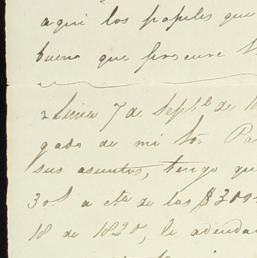 aqui los papeles que
bueno que procure
Lima 7 de Septbe de 18
gado de mi Sor Pa
sus asuntos, tengo qu
30$ a cta de los $300
18 de 1830, le adeuda